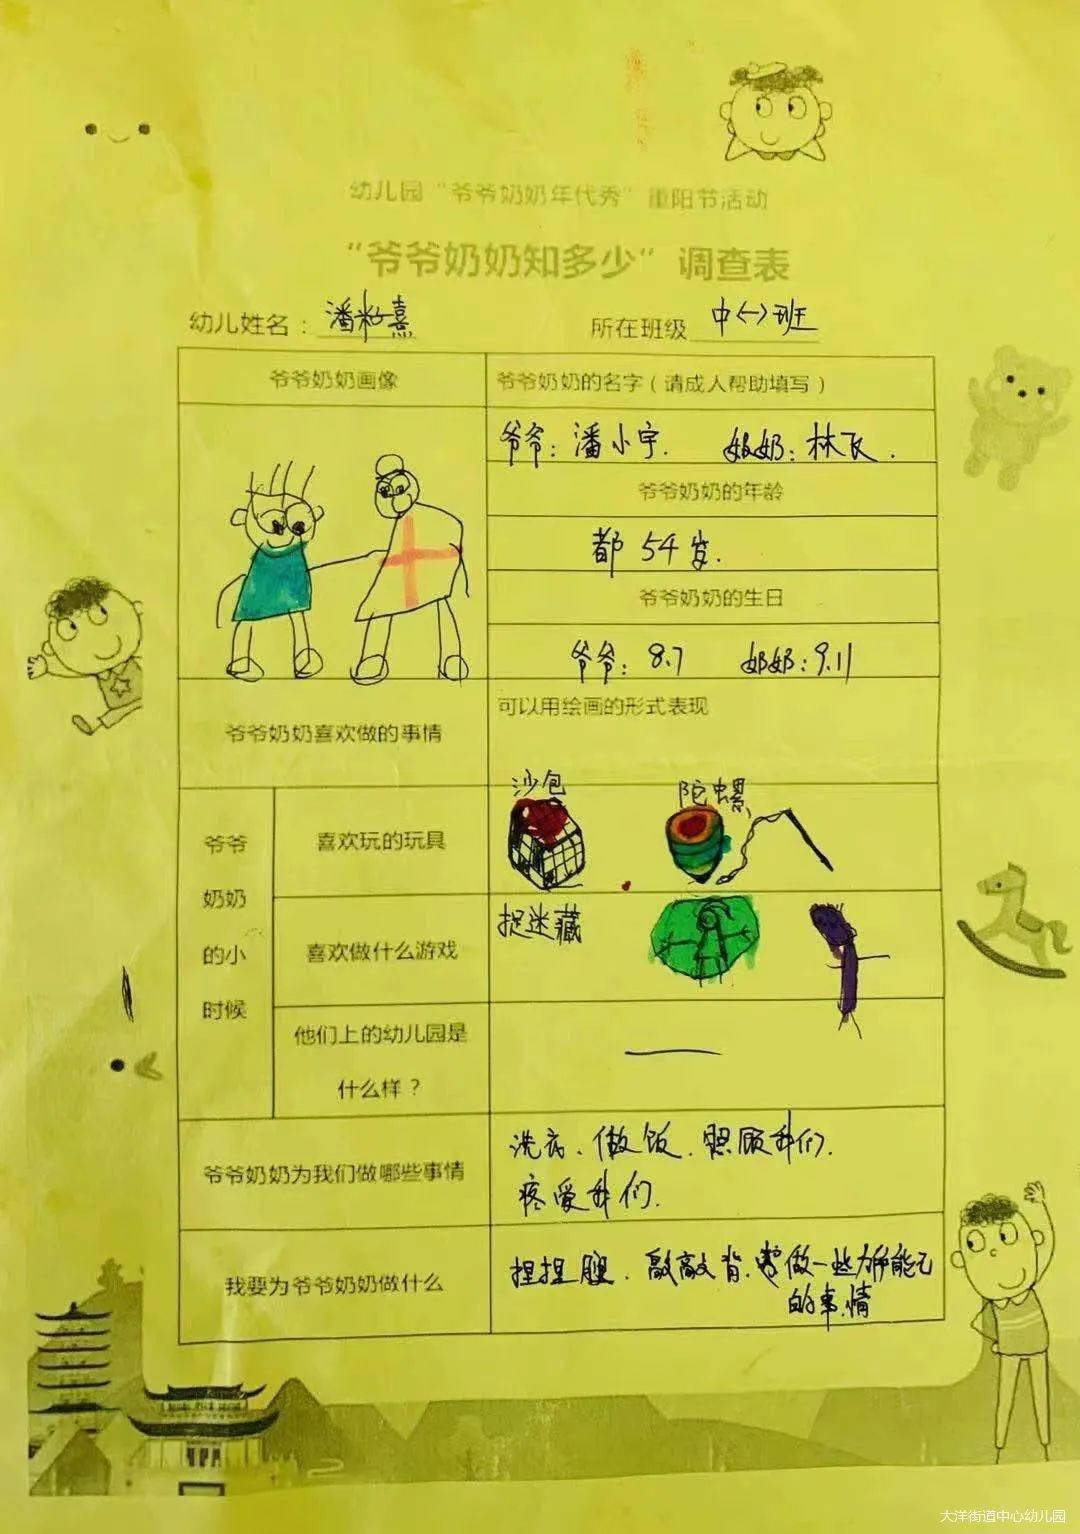 幼儿园“爷爷奶奶年代秀”重阳节活动
“爷爷奶奶知多少”调查表
幼儿姓名：潘 熹 所在班级 中(一)班
爷爷奶奶画像
爷爷奶奶的名字（请成人帮助填写）
爷爷：潘小宇. 奶奶：林飞.
爷爷奶奶的年龄
都 54 岁.
爷爷奶奶的生日
爷爷：8.7 奶奶：9.11
爷爷奶奶喜欢做的事情
可以用绘画的形式表现
爷爷
奶奶
的小
时候
喜欢玩的玩具
沙包 陀螺
喜欢做什么游戏
捉迷藏
他们上的幼儿园是
什么样？
爷爷奶奶为我们做哪些事情
洗衣、做饭、照顾我们.
疼爱我们.
我要为爷爷奶奶做什么
捏捏腿、敲敲背、做一些力所能及
的事情
大洋街道中心幼儿园